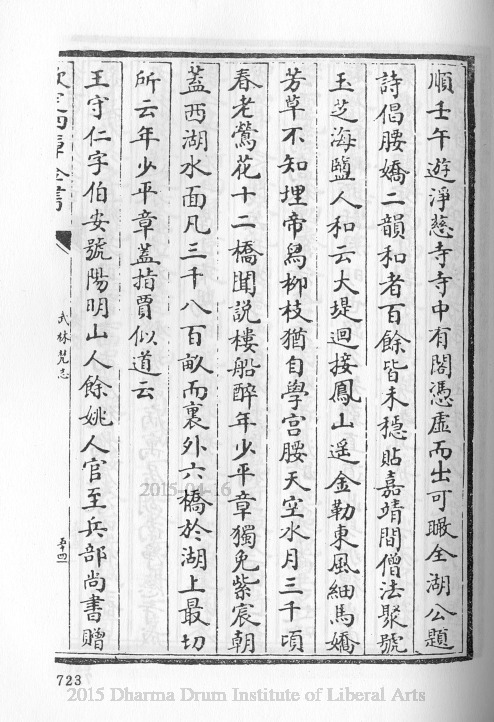 順壬午遊淨慈寺寺中有閣憑虛而出可瞰全湖公題
詩倡腰嬌二韻和者百餘皆未穩貼嘉靖間僧法聚號
玉芝海鹽人和云大堤迴接鳳山遥金勒東風細馬嬌
芳草不知埋帝舄柳枝猶自學宮腰天空水月三千頃
春老鶯花十二橋聞説樓船醉年少平章獨免紫宸朝
蓋西湖水面凡三千八百畝而裏外六橋於湖上最切
所云年少平章蓋指賈似道云
王守仁字伯安號陽明山人餘姚人官至兵部尚書贈
欽定四庫全書
武林梵志
五十四
723
2015-04-16
2015 Dharma Drum Institute of Liberal Arts